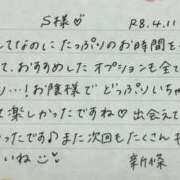 S様♡ R8.4.11
してなのに、たっぷりのお時間を
て、おすすめしたオプションも全て
り…!お陰様でどっぷりいちゃ
て楽しかったですね♡出会えて
ったです♪また次回もたくさん
いね
新條